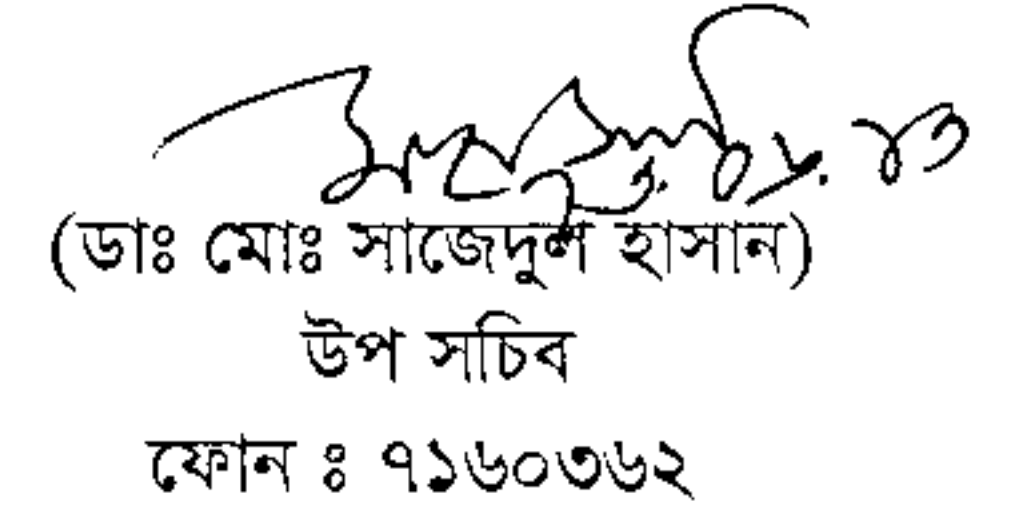 (ডাঃ মোঃ সাজেদুল হাসান)
উপ সচিব
ফোন : ৭১৬০৩৬২